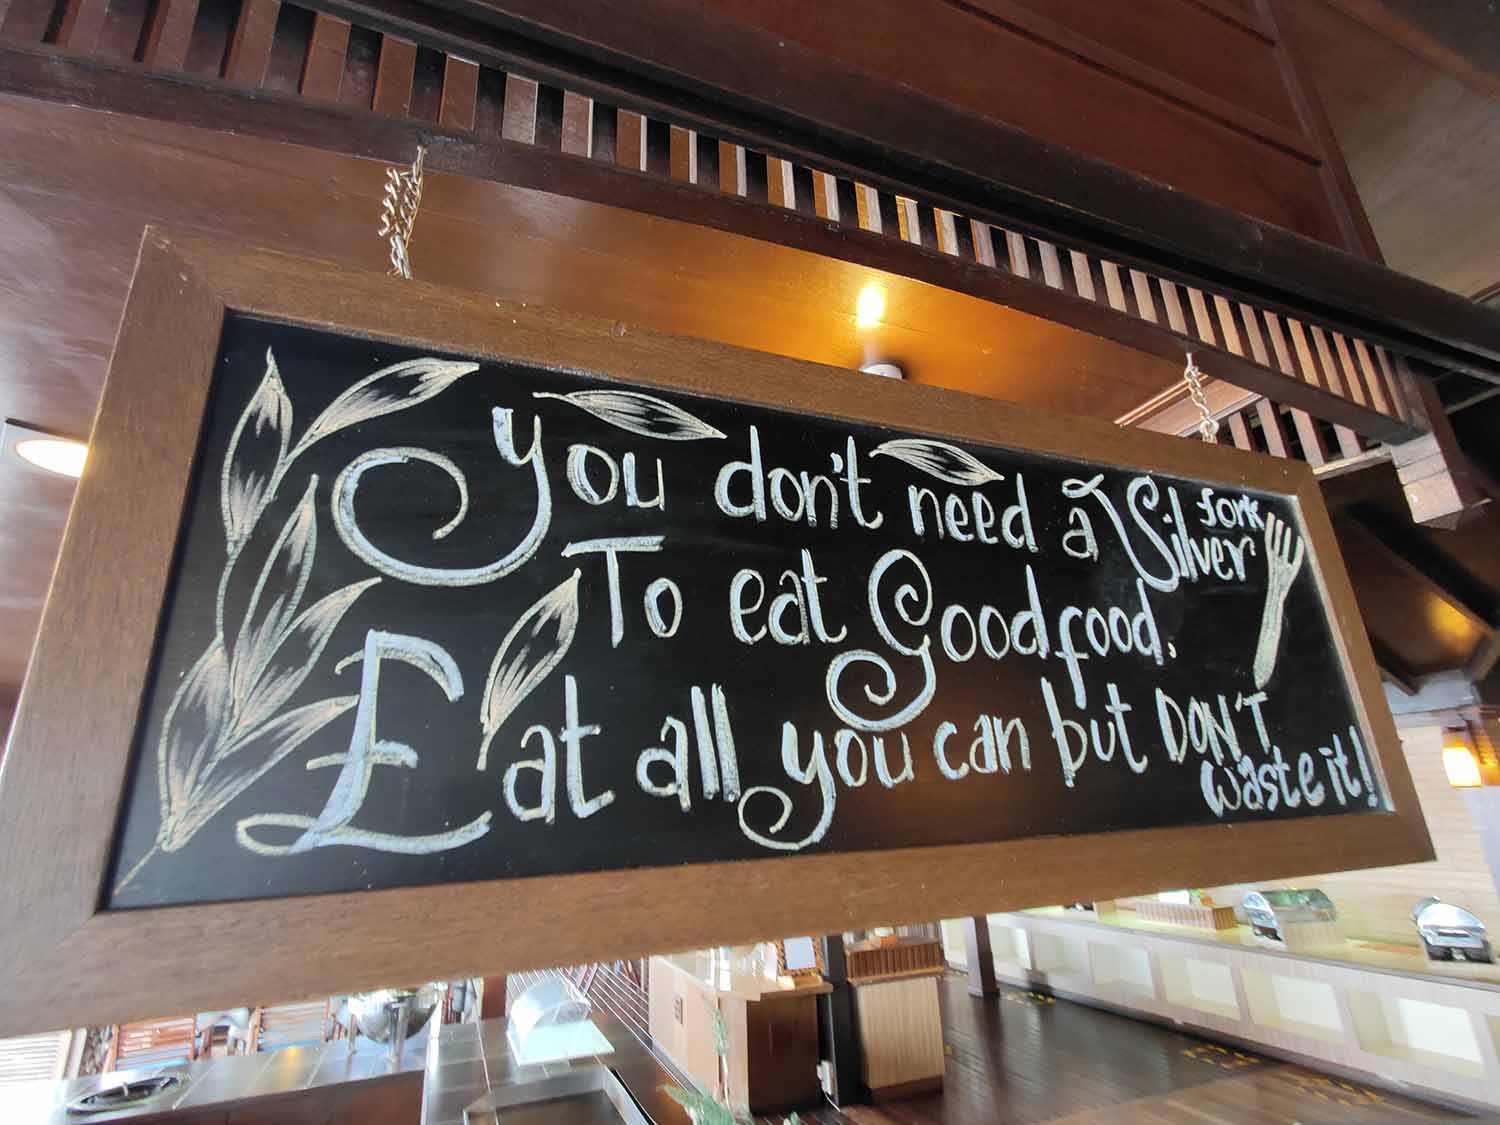 You don't need a Silver fork
To eat Good food.
Eat all you can but DON'T
waste it!